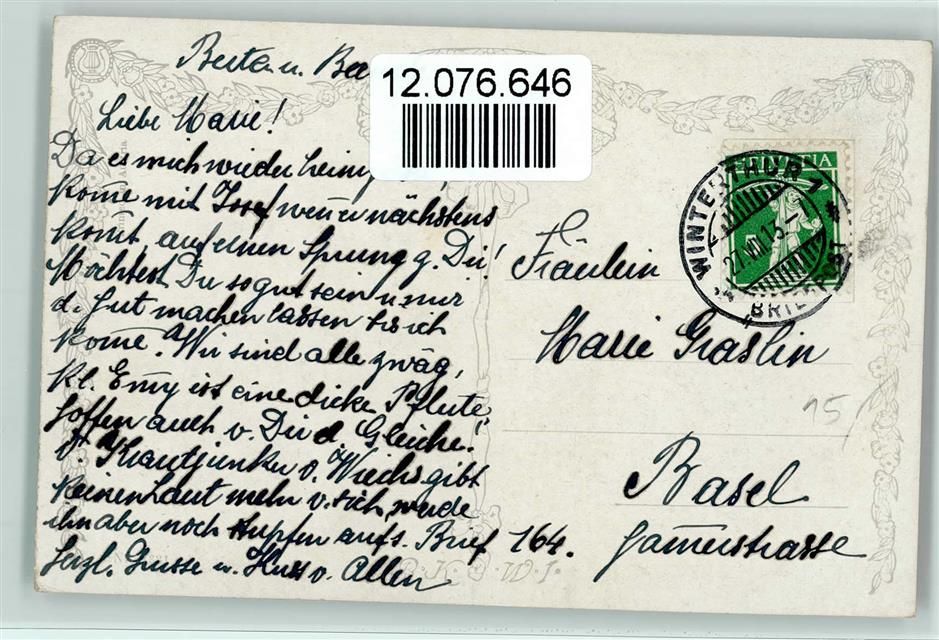 12.076.646
Liebe Marie!
Da es mich wieder
kome mit Josef wen er nächstens
komt, auf einen Sprung z. Dir!
Möchtest Du so gut sein u. mir
d. Hut machen lassen bis ich
kome. Wir sind alle zwäg,
kl. Emy ist eine dicke Pflute
hoffen auch v. Dir d. Gleiche!
D. Krautjunker v. Wiechs gibt
keinen Laut mehr v. sich, werde
ihn aber noch Hupfen auf s. Brief
herzl. Grüsse u. Kuss v. Allen
HELVETIA
WINTERTHUR 1
27.VII.13
BRIEFPOST
Fräulein
Marie Graslin
15
Basel
164. Hamerstrasse